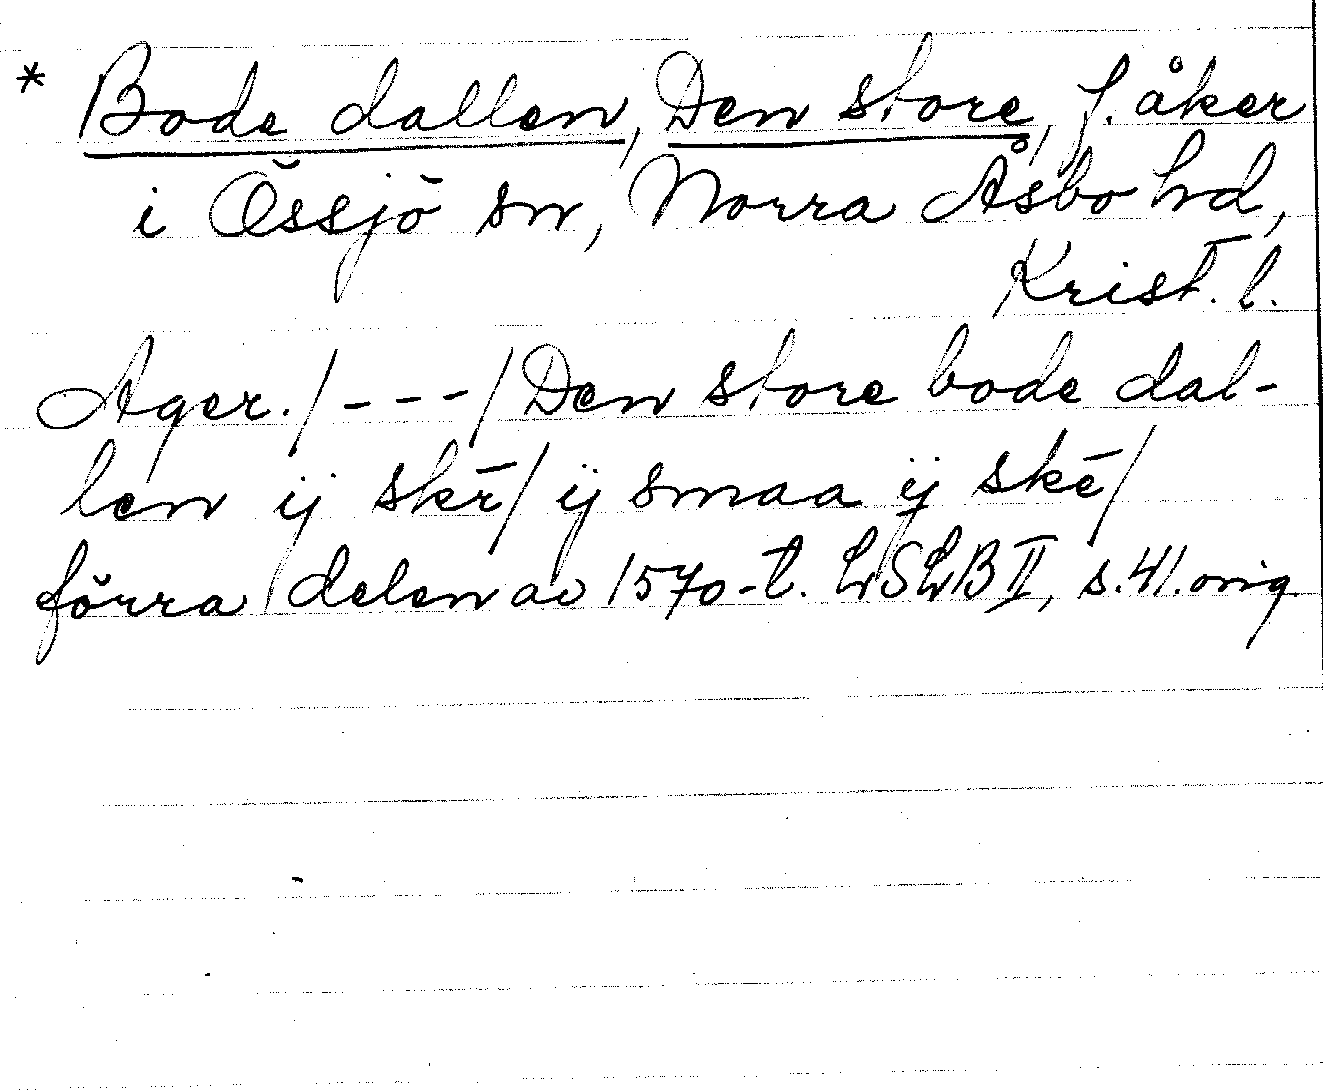 * Bode dallen, Den store, f. åker
i Össjö sn, Norra Åsbo hd,
Krist. l.
Ager. / - - - / Den store bode dal-
len ij skr̄ / ij smaa ij skē /
förra delen av 1570-t. LSLB II, s. 41. orig.